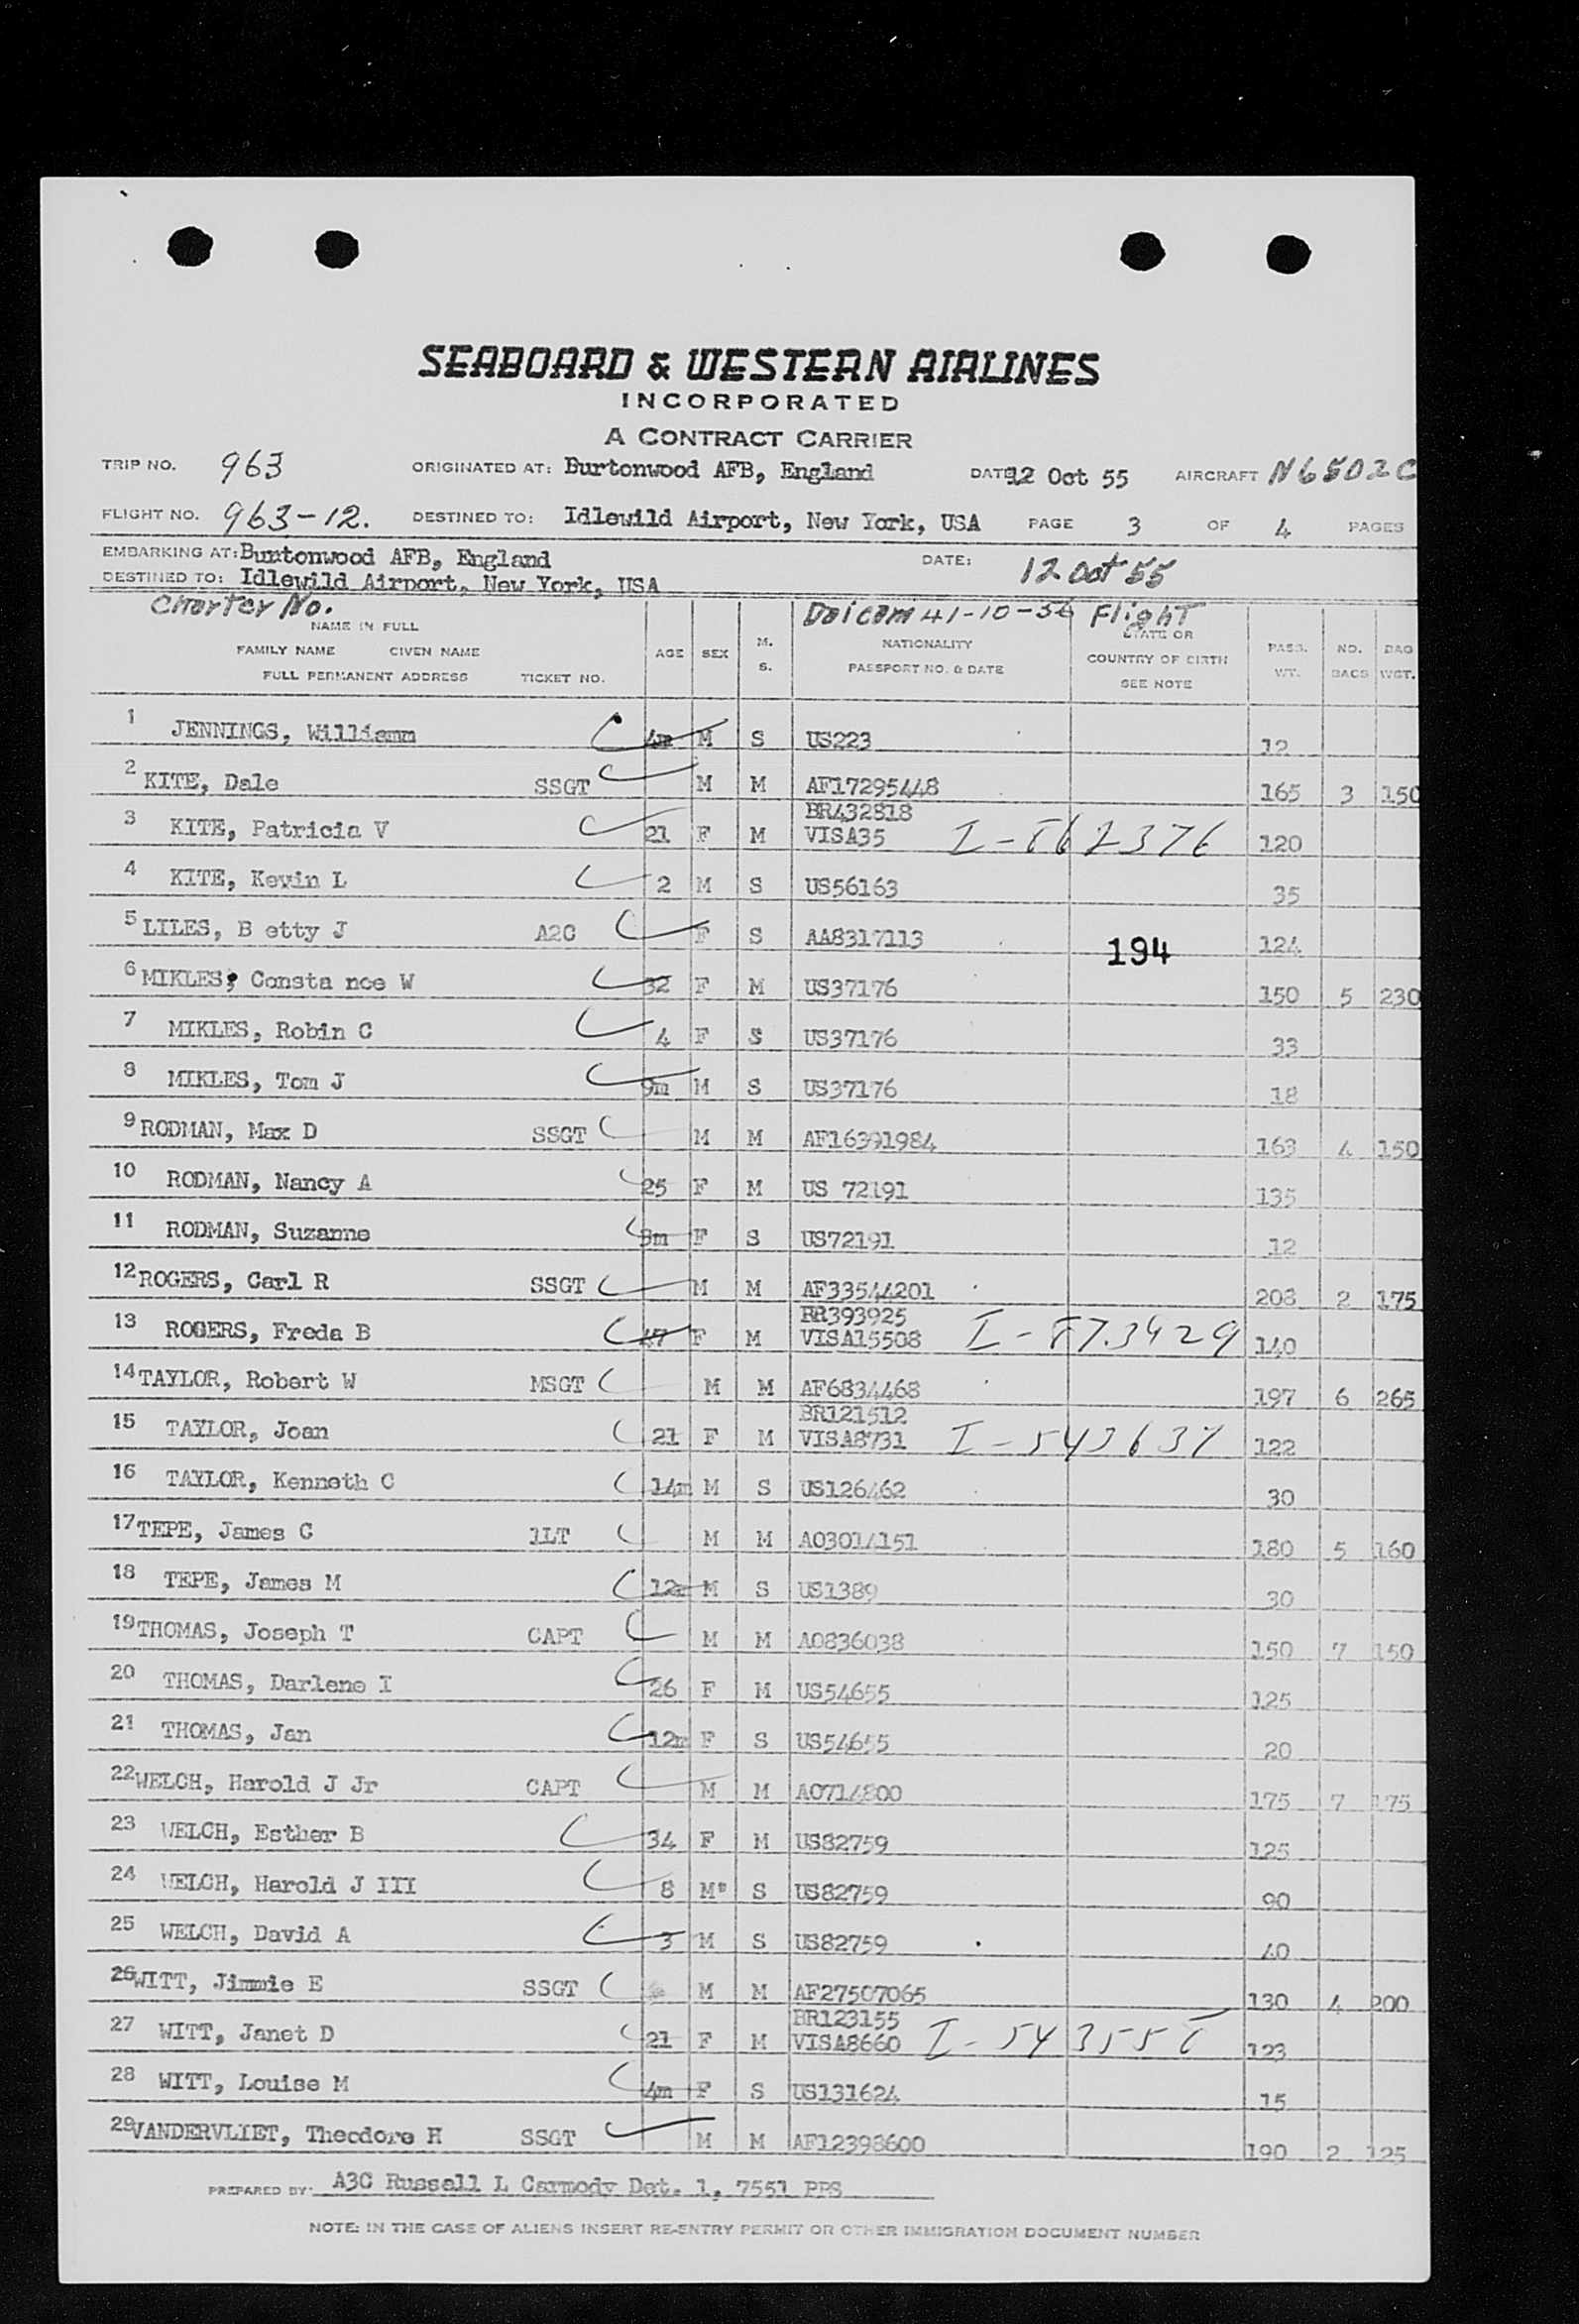 SEABOARD & WESTERN AIRLINES
INCORPORATED
A CONTRACT CARRIER
TRIP NO. 963 ORIGINATED AT: Burtonwood AFB, England DATE 12 Oct 55 AIRCRAFT N6502C
FLIGHT NO. 963-12. DESTINED TO: Idlewild Airport, New York, USA PAGE 3 OF 4 PAGES
EMBARKING AT: Burtonwood AFB, England DATE: 12 Oct 55
DESTINED TO: Idlewild Airport, New York, USA
Charter No. 41-10-56 Flight
NAME IN FULL
FAMILY NAME GIVEN NAME
FULL PERMANENT ADDRESS TICKET NO.
AGE SEX M. S.
NATIONALITY
PASSPORT NO. & DATE
STATE OR
COUNTRY OF BIRTH
SEE NOTE
PASS. WT. NO. BAGS BAG WGT.
1 JENNINGS, Williamm 4m M S US223 12
2 KITE, Dale SSGT M M AF17295448 165 3 150
3 KITE, Patricia V 21 F M BR432818
VISA35 I-862376 120
4 KITE, Kevin L 2 M S US56163 35
5 LILES, B etty J A2C F S AA8317113 124
194
6 MIKLES, Consta nce W 32 F M US37176 150 5 230
7 MIKLES, Robin C 4 F S US37176 33
8 MIKLES, Tom J 9m M S US37176 18
9 RODMAN, Max D SSGT M M AF16391984 163 4 150
10 RODMAN, Nancy A 25 F M US 72191 135
11 RODMAN, Suzanne F S US72191 12
12 ROGERS, Carl R SSGT M M AF33544201 208 2 175
13 ROGERS, Freda B F M BR393925
VISA15508 I-873429 140
14 TAYLOR, Robert W MSGT M M AF6834468 197 6 265
15 TAYLOR, Joan 21 F M BR121512
VISA8731 122
16 TAYLOR, Kenneth C 14m M S US126462 30
17 TEPE, James C 1LT M M AO3014151 180 5 160
18 TEPE, James M 12m M S US1389 30
19 THOMAS, Joseph T CAPT M M AO836038 150 7 150
20 THOMAS, Darlene I 26 F M US54655 125
21 THOMAS, Jan 12m F S US54655 20
22 WELCH, Harold J Jr CAPT M M AO714800 175 7 175
23 WELCH, Esther B 34 F M US82759 125
24 WELCH, Harold J III 8 M S US82759 90
25 WELCH, David A 3 M S US82759 40
26 WITT, Jimmie E SSGT M M AF27507065 130 4 200
27 WITT, Janet D 21 F M BR123155
VISA8660 I-543558 123
28 WITT, Louise M 4m F S US131624 15
29 VANDERVLIET, Theodore H SSGT M M AF12398600 190 2 125
PREPARED BY: A3C Russell L Carmody Det. 1, 7551 PPS
NOTE: IN THE CASE OF ALIENS INSERT RE-ENTRY PERMIT OR OTHER IMMIGRATION DOCUMENT NUMBER